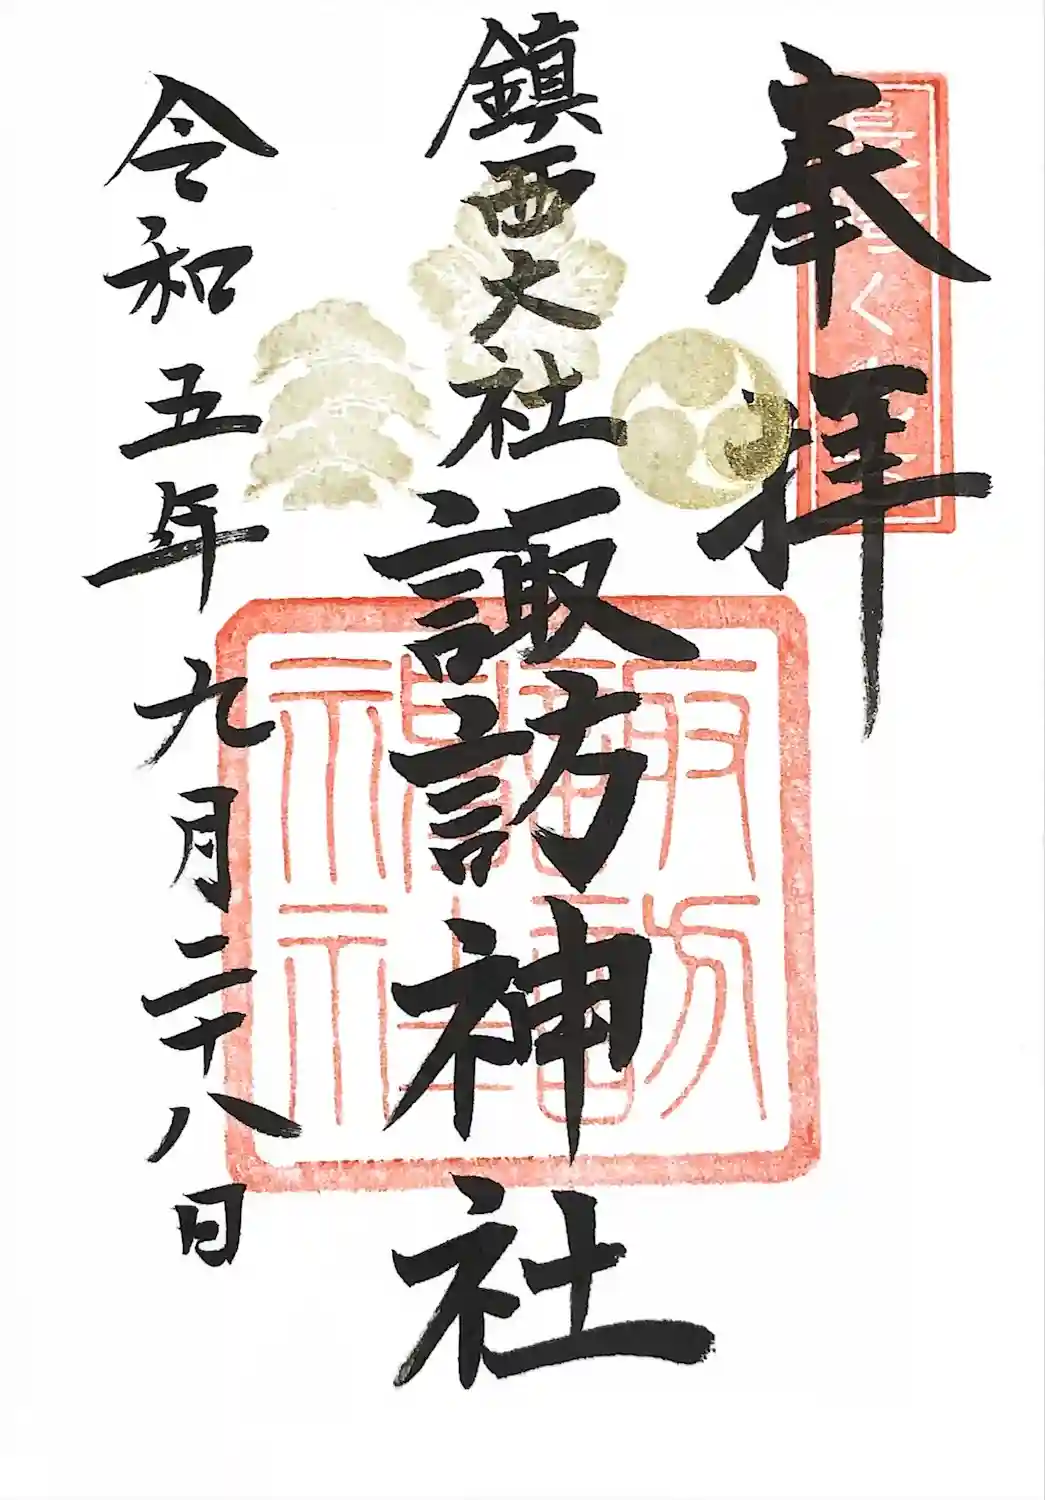 奉拝
鎮西大社
諏訪神社
令和五年九月二十八日
諏訪神社